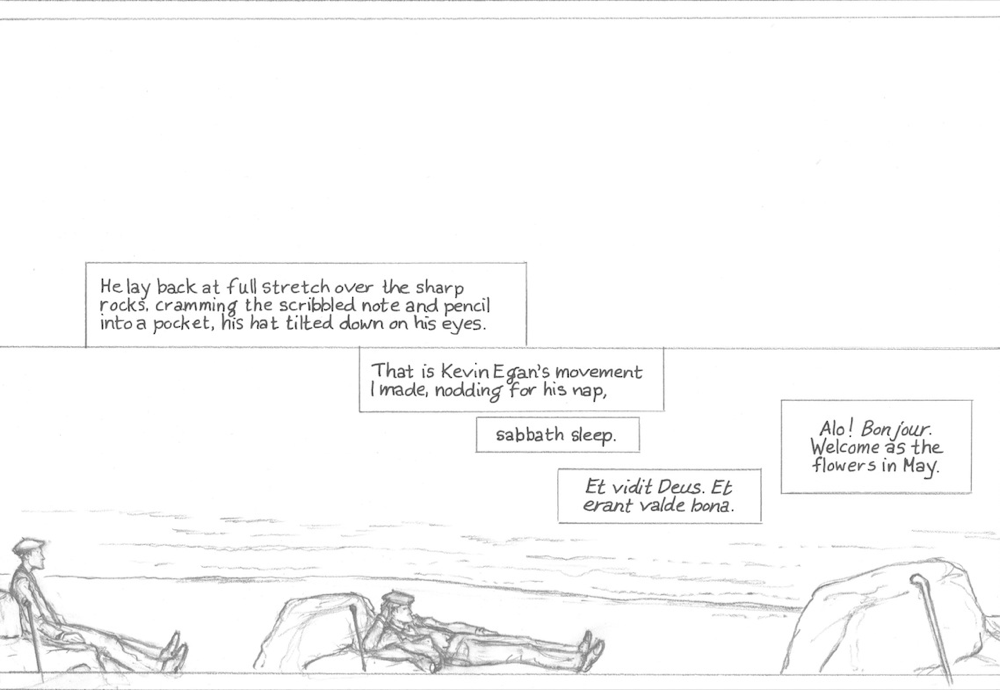 He lay back at full stretch over the sharp
rocks, cramming the scribbled note and pencil
into a pocket, his hat tilted down on his eyes.
That is Kevin Egan's movement
I made, nodding for his nap,
sabbath sleep.
Et vidit Deus. Et
erant valde bona.
Alo! Bonjour.
Welcome as the
flowers in May.